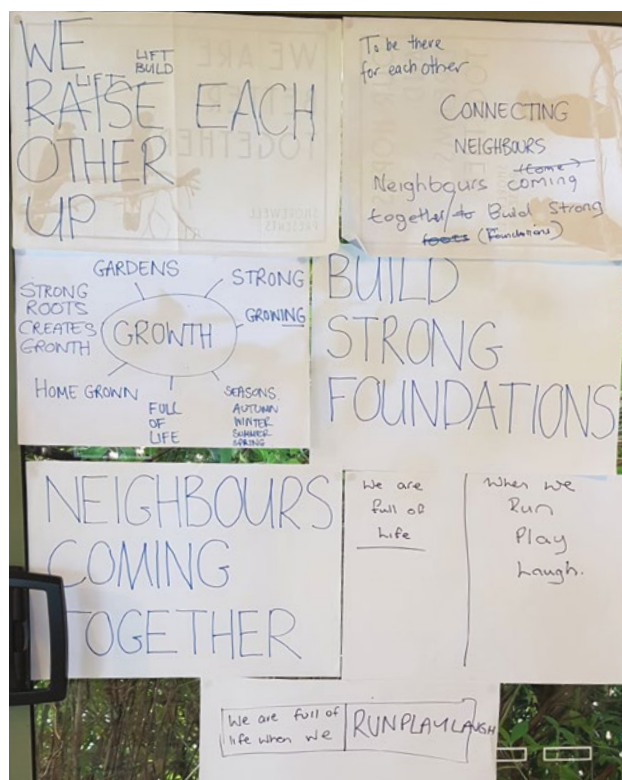 WE
LIFT
BUILD
LIFT
RAISE EACH
OTHER
UP
WE ARE
TOGETHER
SHOREWELL
PRESENTS
To be there
for each other
CONNECTING
NEIGHBOURS
(come)
Neighbours coming
together/to Build Strong
roots (Foundations)
GARDENS
STRONG
GROWING
STRONG
ROOTS
CREATES
GROWTH
GROWTH
HOME GROWN
FULL
OF
LIFE
SEASONS.
AUTUMN
WINTER
SUMMER
SPRING
BUILD
STRONG
FOUNDATIONS
NEIGHBOURS
COMING
TOGETHER
We are
full of
Life
When we
Run
Play
Laugh.
We are full of
life when we
RUNPLAYLAUGH